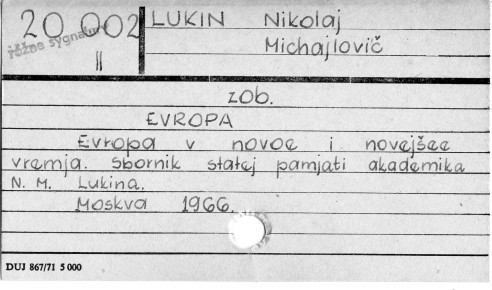 20 002 LUKIN Nikolaj
różne sygnatury
II Michajlovič
zob.
EVROPA
Evropa v novoe i novejšee
vremja. Sbornik statej pamjati akademika
N. M. Lukina.
Moskva 1966.
DUJ 867/71 5 000